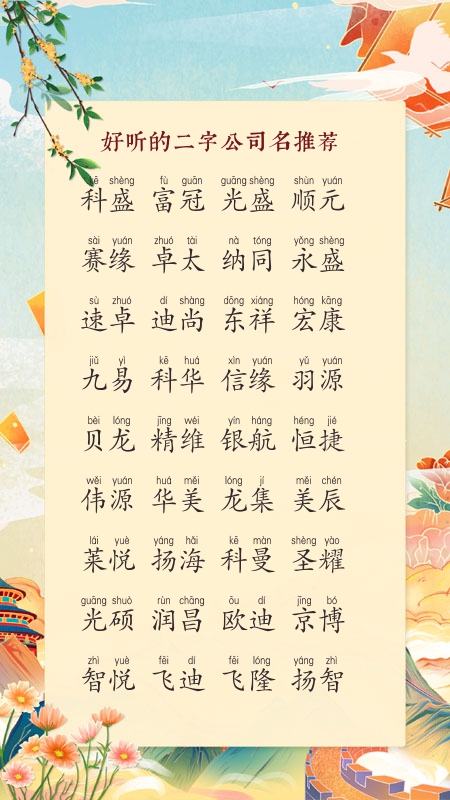 好听的二字公司名推荐
kē shèng fù guān guāng shèng shùn yuán
科盛 富冠 光盛 顺元
sài yuán zhuó tài nà tóng yǒng shèng
赛缘 卓太 纳同 永盛
sù zhuó dí shàng dōng xiáng hóng kāng
速卓 迪尚 东祥 宏康
jiǔ yì kē huá xìn yuán yǔ yuán
九易 科华 信缘 羽源
bèi lóng jīng wéi yín háng héng jié
贝龙 精维 银航 恒捷
wěi yuán huá měi lóng jí měi chén
伟源 华美 龙集 美辰
lái yuè yáng hǎi kē màn shèng yào
莱悦 扬海 科曼 圣耀
guāng shuò rùn chāng ōu dí jīng bó
光硕 润昌 欧迪 京博
zhì yuè fēi dí fēi lóng yáng zhì
智悦 飞迪 飞隆 扬智